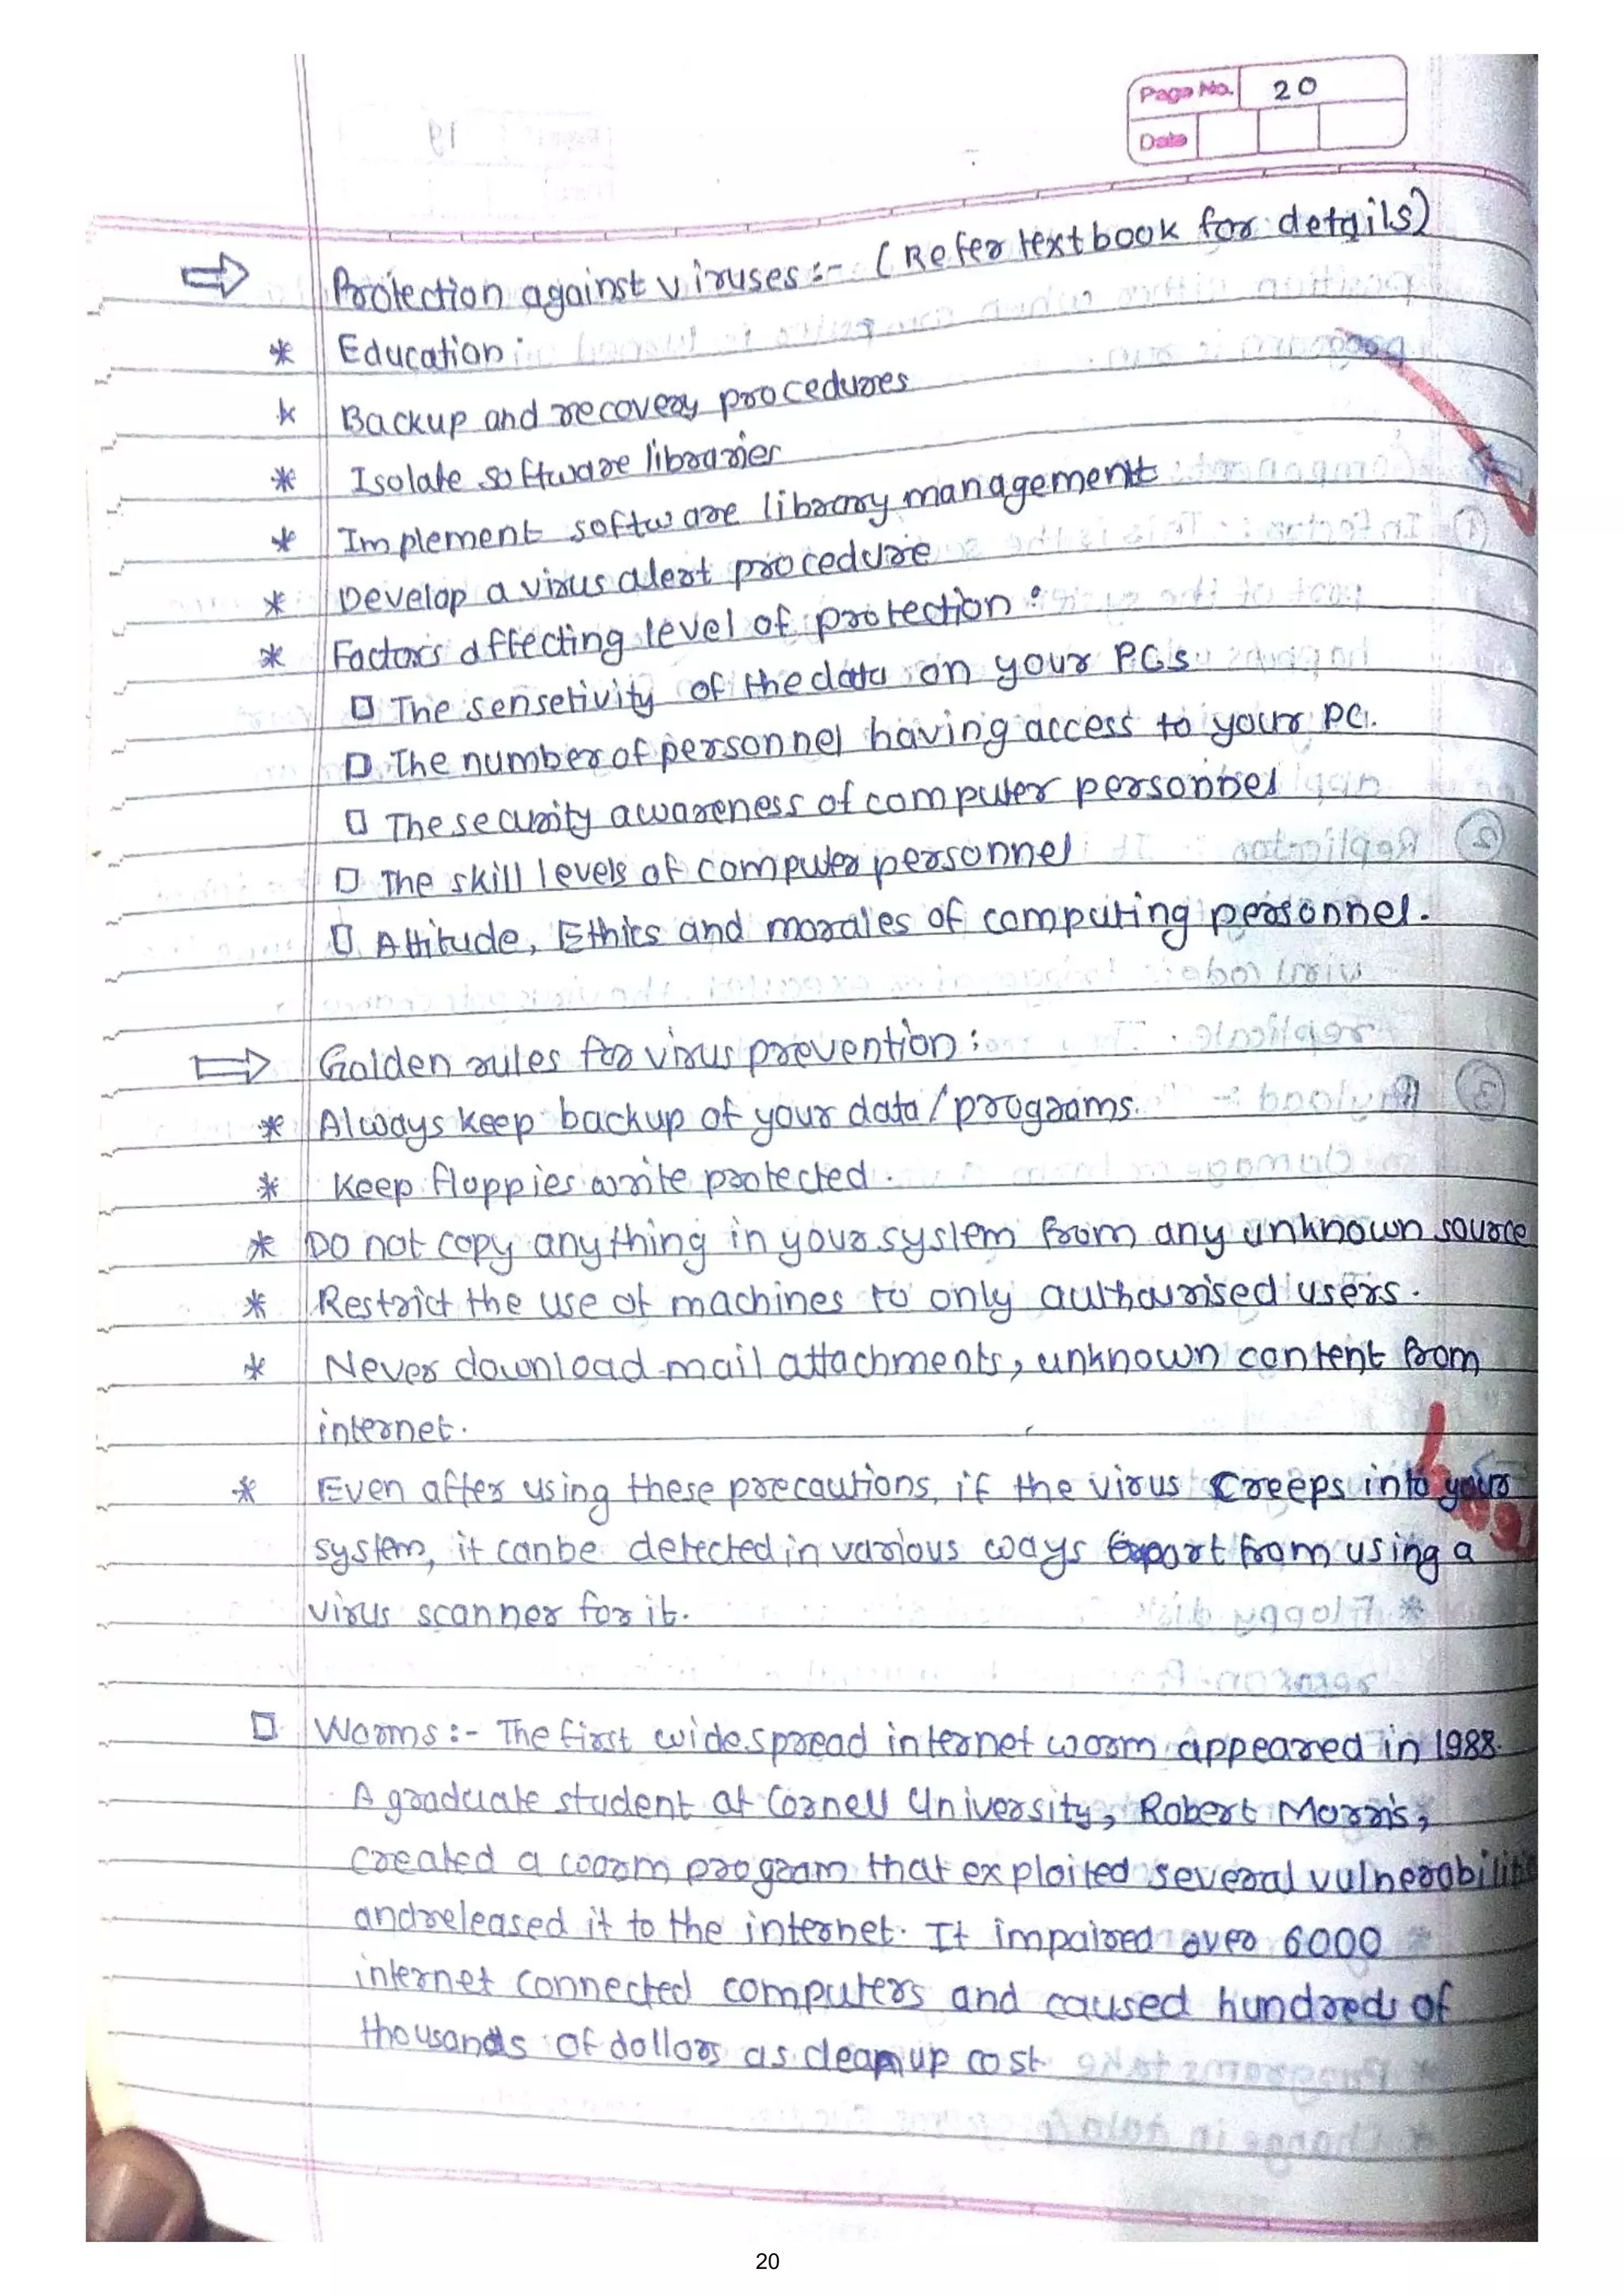 Page No. 20
Date
⇒ Protection against viruses :- (Refer textbook for details)
* Education :
* Backup and recovery procedures
* Isolate software libraries
* Implement software library management
* Develop a virus alert procedure
* Factors affecting level of protection :
□ The sensetivity of the data on your PCs
□ The number of personnel having access to your PC.
□ The security awareness of computer personnel
□ The skill levels of computer personnel
□ Attitude, Ethics and morales of computing personnel.
⇒ Golden rules for virus prevention :
* Always keep backup of your data / programs.
* Keep floppies write protected.
* Do not copy anything in your system from any unknown source
* Restrict the use of machines to only authourised users.
* Never download mail attachments, unknown content from
internet.
* Even after using these precautions, if the virus creeps into your
system, it can be detected in various ways apart from using a
virus scanner for it.
□ Worms :- The first widespread internet worm appeared in 1988.
A graduate student at Cornell University, Robert Morris,
created a worm program that exploited several
and released it to the internet. It impaired over 6000
internet connected computers and caused hundreds of
thousands of dollars as cleanup cost
20